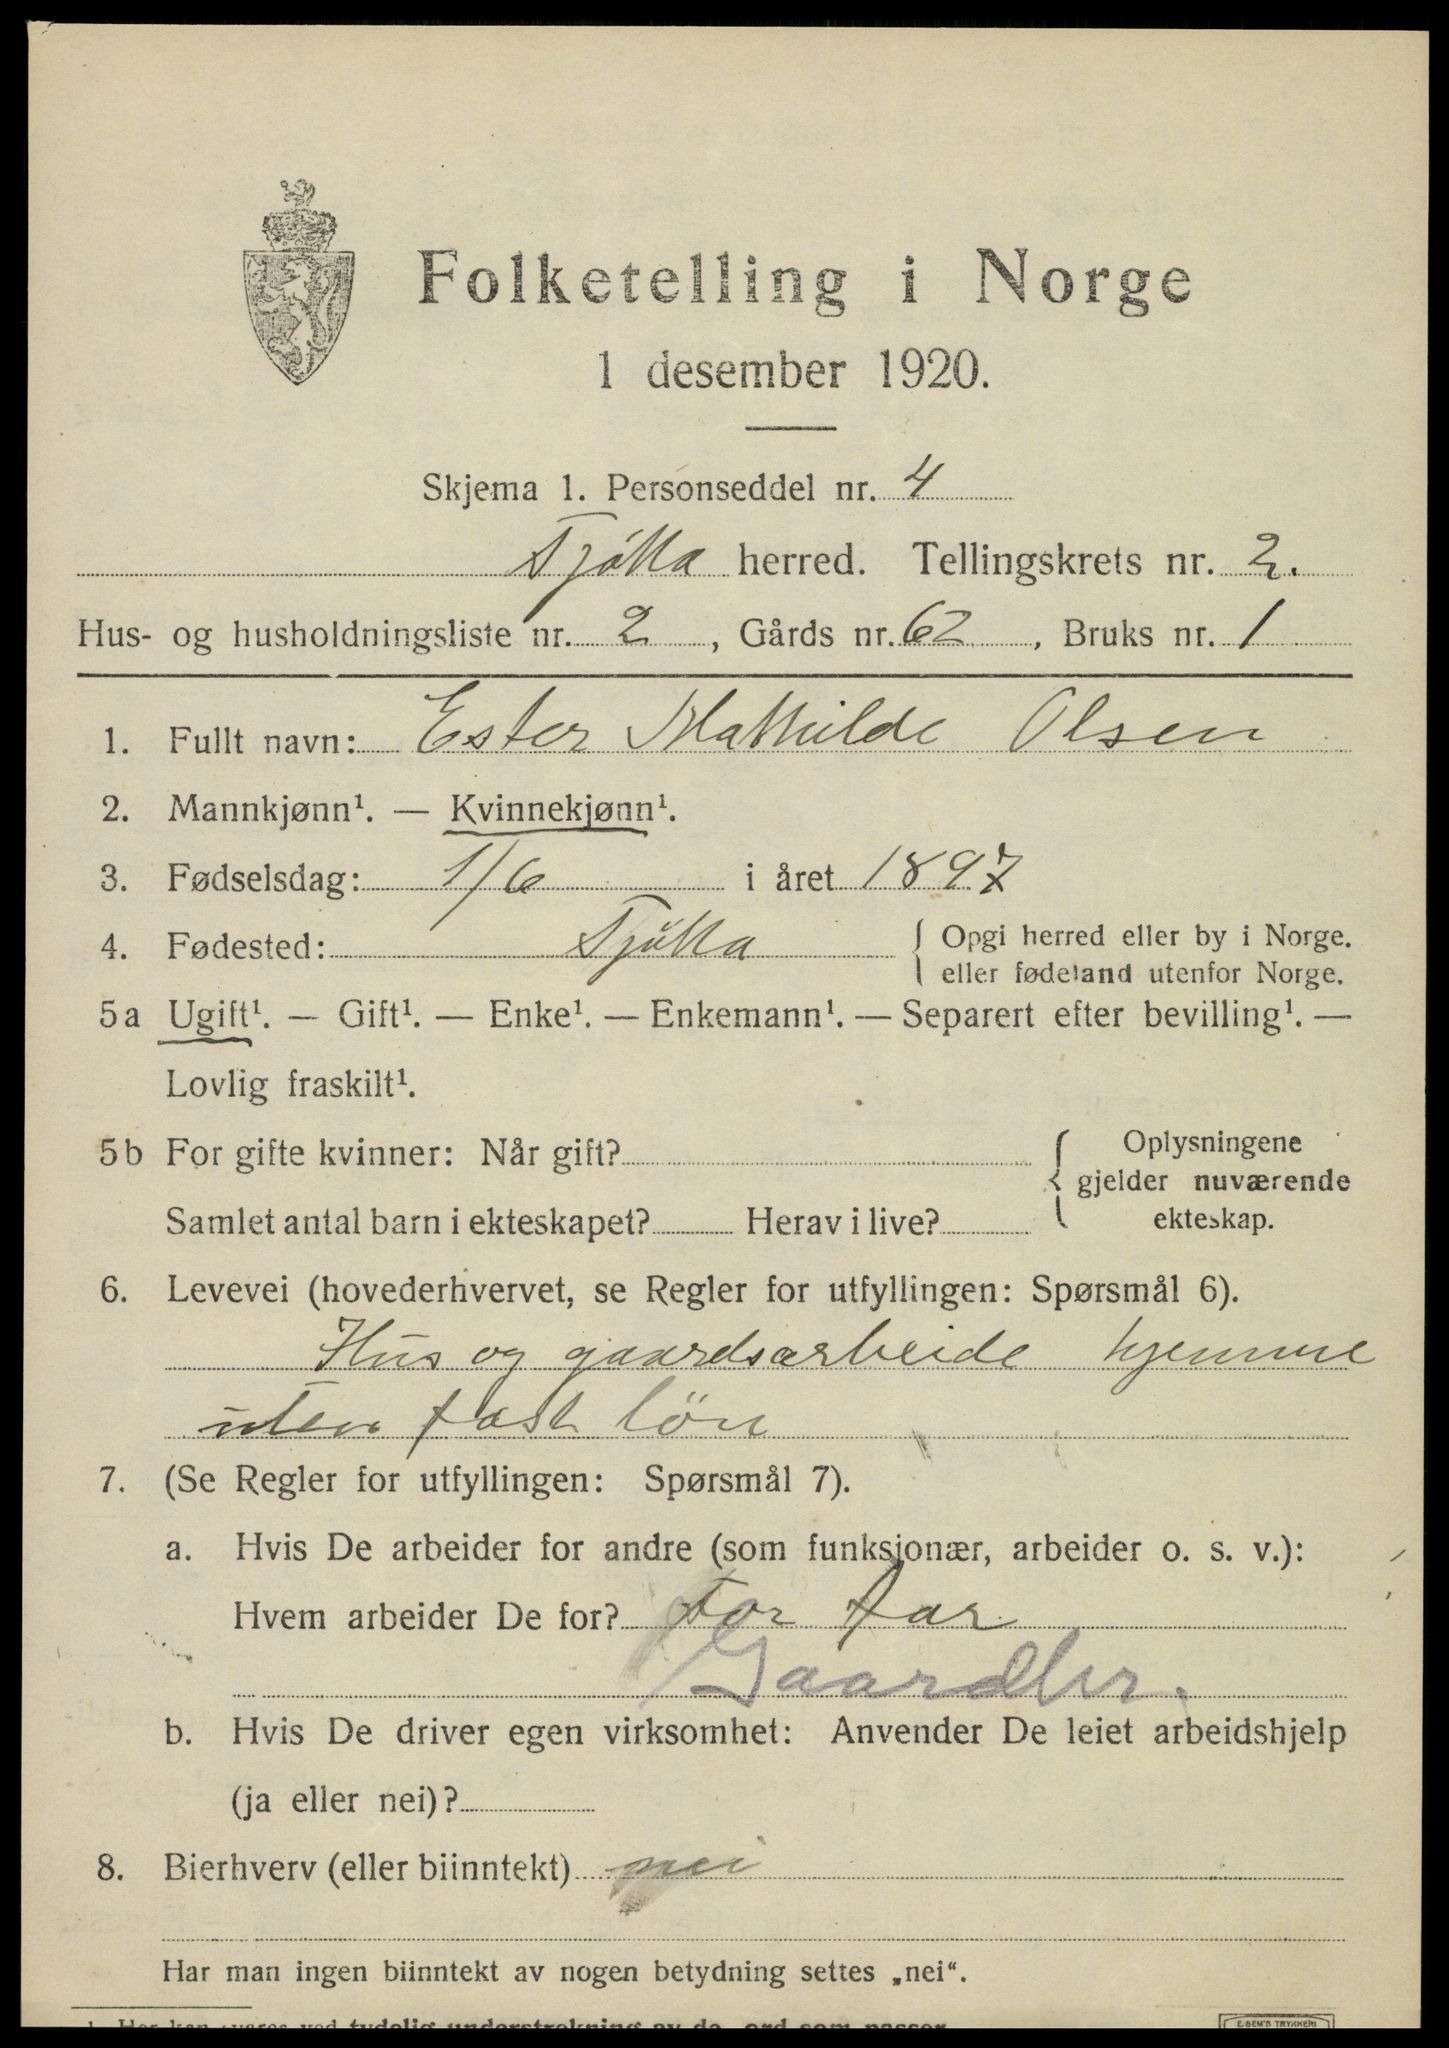 Folketelling i Norge
1 desember 1920.
Skjema 1. Personseddel nr. 4
Tjøtta herred. Tellingskrets nr. 2.
Hus- og husholdningsliste nr. 2, Gårds nr. 62, Bruks nr. 1
1. Fullt navn: Ester Mathilde Olsen
2. Mannkjønn¹. — Kvinnekjønn¹.
3. Fødselsdag: 1/6 i året 1897
4. Fødested: Tjøtta { Opgi herred eller by i Norge.
eller fødeland utenfor Norge.
5a Ugift¹. — Gift¹. — Enke¹. — Enkemann¹. — Separert efter bevilling¹. —
Lovlig fraskilt¹.
5b For gifte kvinner: Når gift? { Oplysningene
gjelder nuværende
Samlet antal barn i ekteskapet? Herav i live? ekteskap.
6. Levevei (hovederhvervet, se Regler for utfyllingen: Spørsmål 6).
Hus og gaardsarbeide hjemme
uten fast løn
7. (Se Regler for utfyllingen: Spørsmål 7).
a. Hvis De arbeider for andre (som funksjonær, arbeider o. s. v.):
Hvem arbeider De for? For far
Gaardbr.
b. Hvis De driver egen virksomhet: Anvender De leiet arbeidshjelp
(ja eller nei)?
8. Bierhverv (eller biinntekt) nei
Har man ingen biinntekt av nogen betydning settes „nei“.
¹ Her kan svares ved tydelig understrekning av de ord som passer.